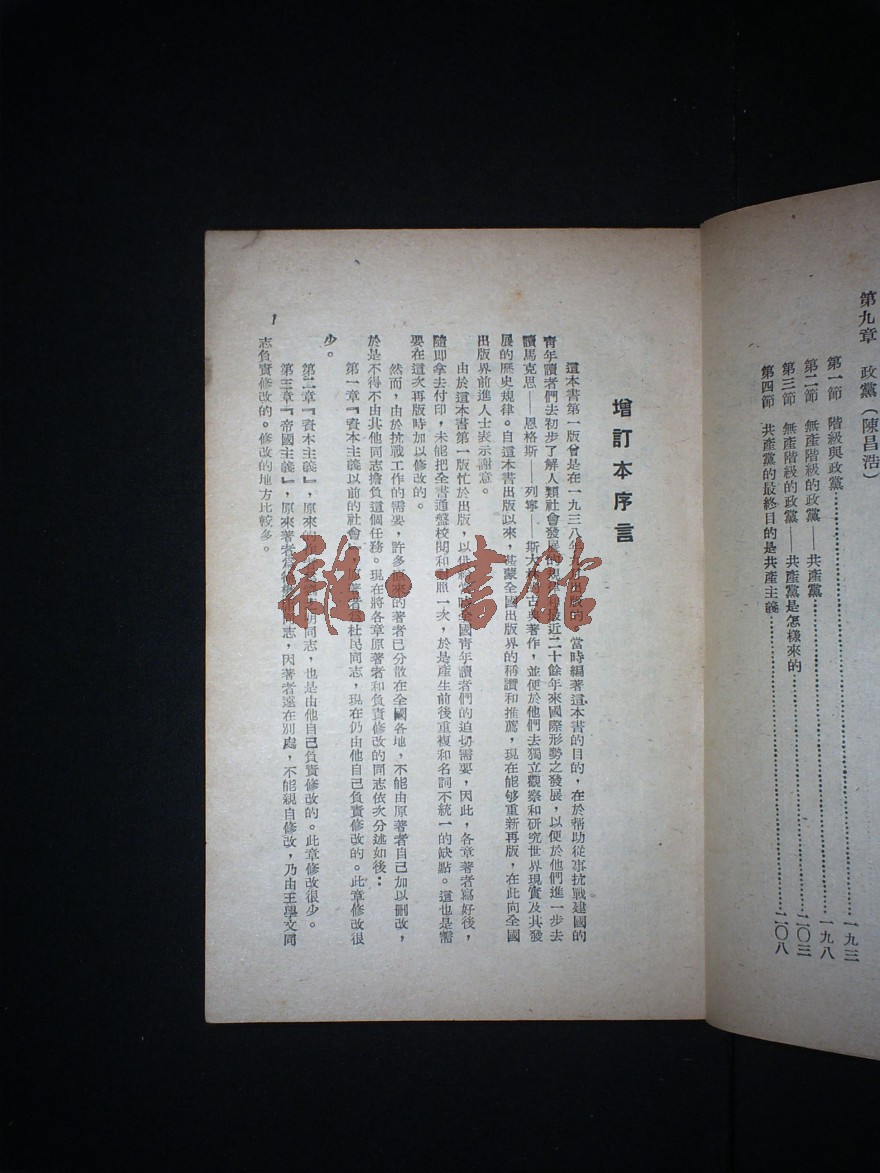 第九章　政黨（陳昌浩）
第一節　階級與政黨……一九三
第二節　無產階級的政黨——共產黨……一九八
第三節　無產階級的政黨——共產黨是怎樣來的……二〇三
第四節　共產黨的最終目的是共產主義……二〇八
增訂本序言
這本書第一版曾是在一九三八年出版的，當時編著這本書的目的，在於幫助從事抗戰建國的
青年讀者們去初步了解人類社會發展的最近二十餘年來國際形勢之發展，以便於他們進一步去
讀馬克思——恩格斯——列寧——斯大林古典著作，並便於他們去獨立觀察和研究世界現實及其發
展的歷史規律。自這本書出版以來，甚蒙全國出版界的稱讚和推薦，現在能够重新再版，在此向全國
出版界前進人士表示謝意。
由於這本書第一版忙於出版，以供給當時全國青年讀者們的迫切需要，因此，各章著者寫好後，
隨即拿去付印，未能把全書通盤校閱和對照一次，於是產生前後重複和名詞不統一的缺點。這也是需
要在這次再版時加以修改的。
然而，由於抗戰工作的需要，許多原來的著者已分散在全國各地，不能由原著者自己加以删改，
於是不得不由其他同志擔負這個任務。現在將各章原著者和負責修改的同志依次分述如後：
第一章『資本主義以前的社會』，著者杜民同志，現在仍由他自己負責修改的。此章修改很
少。
第二章『資本主義』，原來的胡同志，也是由他自己負責修改的。此章修改很少。
第三章『帝國主義』，原來著者同志，因著者遠在別處，不能親自修改，乃由王學文同
志負責修改的。修改的地方比較多。
1
雜·書館